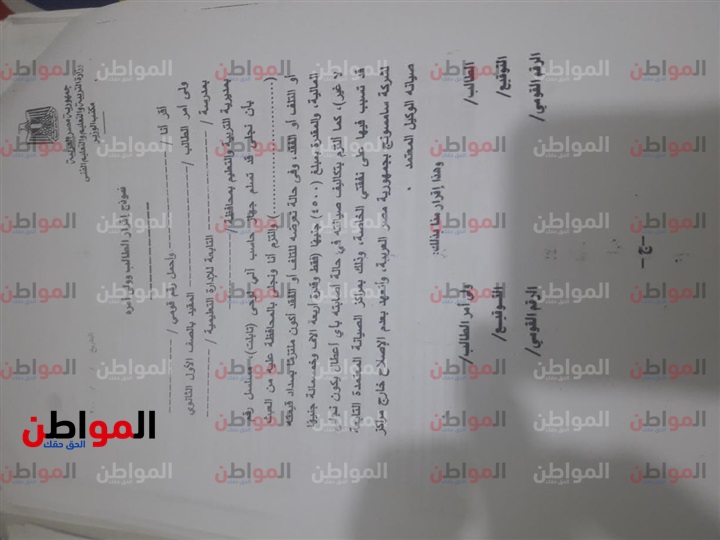 جمهورية مصر العربية
وزارة التربية والتعليم والتعليم الفنى
مكتب الوزير
نموذج إقرار الطالب وولى أمره
أقر أنا / وأحمل رقم قومي /
ولى أمر الطالب / المقيد بالصف الأول الثانوي
بمدرسة / التابعة للإدارة التعليمية /
بمديرية التربية والتعليم بمحافظة /
بأن نجلى قد تسلم جهاز حاسب آلي لوحى (تابلت)، مسلسل رقم
(..............................) والتزم أنا ونجلى بالمحافظة عليه من العبث
أو التلف أو الفقد، وفى حالة تعرضه للتلف أو الفقد أكون ملتزمًا بسداد قيمته
المالية، والمقدرة بمبلغ (٤٥٠٠) جنيهًا (فقط وقدره أربعة الاف وخمسمائة جنيهًا
لا غير)، كما التزم بتكاليف صيانته في حالة إصابته بأي أعطال يكون نجلى
قد تسبب فيها على نفقتي الخاصة، وذلك بمراكز الصيانة المعتمدة التابعة
لشركة سامسونج بجمهورية مصر العربية، وأتعهد بعدم الإصلاح خارج مراكز
صيانة الوكيل المعتمد .
وهذا إقرار منا بذلك؛
الطالب/ ولى أمر الطالب/
التوقيع/ التوقيع/
الرقم القومي/ الرقم القومي/
-ج-
المواطن
الحق حقك